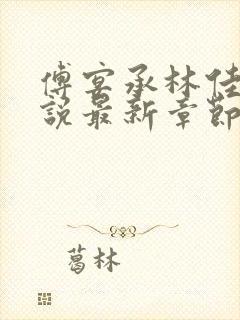 傅宴承林佳
說最新章節
葛林